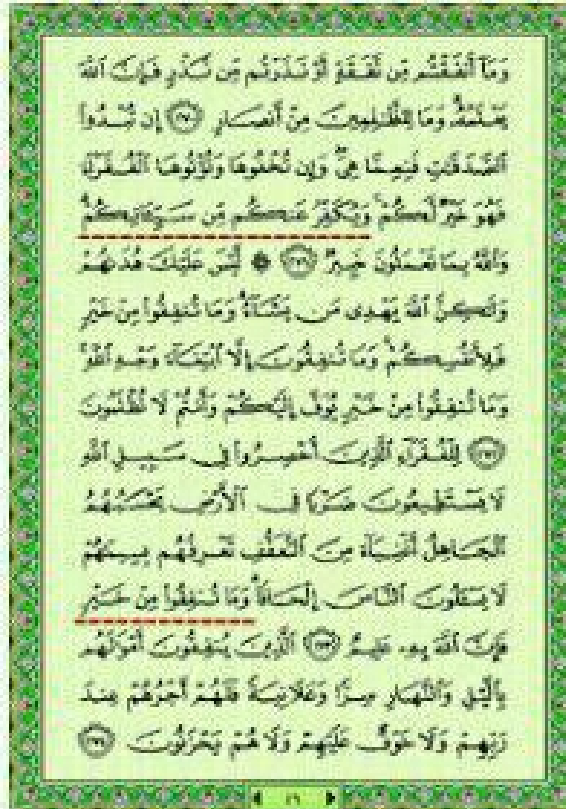 وَمَآ أَنفَقْتُم مِّن نَّفَقَةٍ أَوْ نَذَرْتُم مِّن نَّذْرٍ فَإِنَّ ٱللَّهَ
يَعْلَمُهُۥ وَمَا لِلظَّٰلِمِينَ مِنْ أَنصَارٍ ٢٧٠ إِن تُبْدُوا۟
ٱلصَّدَقَٰتِ فَنِعِمَّا هِىَ وَإِن تُخْفُوهَا وَتُؤْتُوهَا ٱلْفُقَرَآءَ
فَهُوَ خَيْرٌ لَّكُمْ وَيُكَفِّرُ عَنكُم مِّن سَيِّـَٔاتِكُمْ
وَٱللَّهُ بِمَا تَعْمَلُونَ خَبِيرٌ ٢٧١ ۞ لَّيْسَ عَلَيْكَ هُدَىٰهُمْ
وَلَٰكِنَّ ٱللَّهَ يَهْدِى مَن يَشَآءُ وَمَا تُنفِقُوا۟ مِنْ خَيْرٍ
فَلِأَنفُسِكُمْ وَمَا تُنفِقُونَ إِلَّا ٱبْتِغَآءَ وَجْهِ ٱللَّهِ
وَمَا تُنفِقُوا۟ مِنْ خَيْرٍ يُوَفَّ إِلَيْكُمْ وَأَنتُمْ لَا تُظْلَمُونَ
٢٧٢ لِلْفُقَرَآءِ ٱلَّذِينَ أُحْصِرُوا۟ فِى سَبِيلِ ٱللَّهِ
لَا يَسْتَطِيعُونَ ضَرْبًا فِى ٱلْأَرْضِ يَحْسَبُهُمُ
ٱلْجَاهِلُ أَغْنِيَآءَ مِنَ ٱلتَّعَفُّفِ تَعْرِفُهُم بِسِيمَٰهُمْ
لَا يَسْـَٔلُونَ ٱلنَّاسَ إِلْحَافًا وَمَا تُنفِقُوا۟ مِنْ خَيْرٍ
فَإِنَّ ٱللَّهَ بِهِۦ عَلِيمٌ ٢٧٣ ٱلَّذِينَ يُنفِقُونَ أَمْوَٰلَهُم
بِٱلَّيْلِ وَٱلنَّهَارِ سِرًّا وَعَلَانِيَةً فَلَهُمْ أَجْرُهُمْ عِندَ
رَبِّهِمْ وَلَا خَوْفٌ عَلَيْهِمْ وَلَا هُمْ يَحْزَنُونَ ٢٧٤